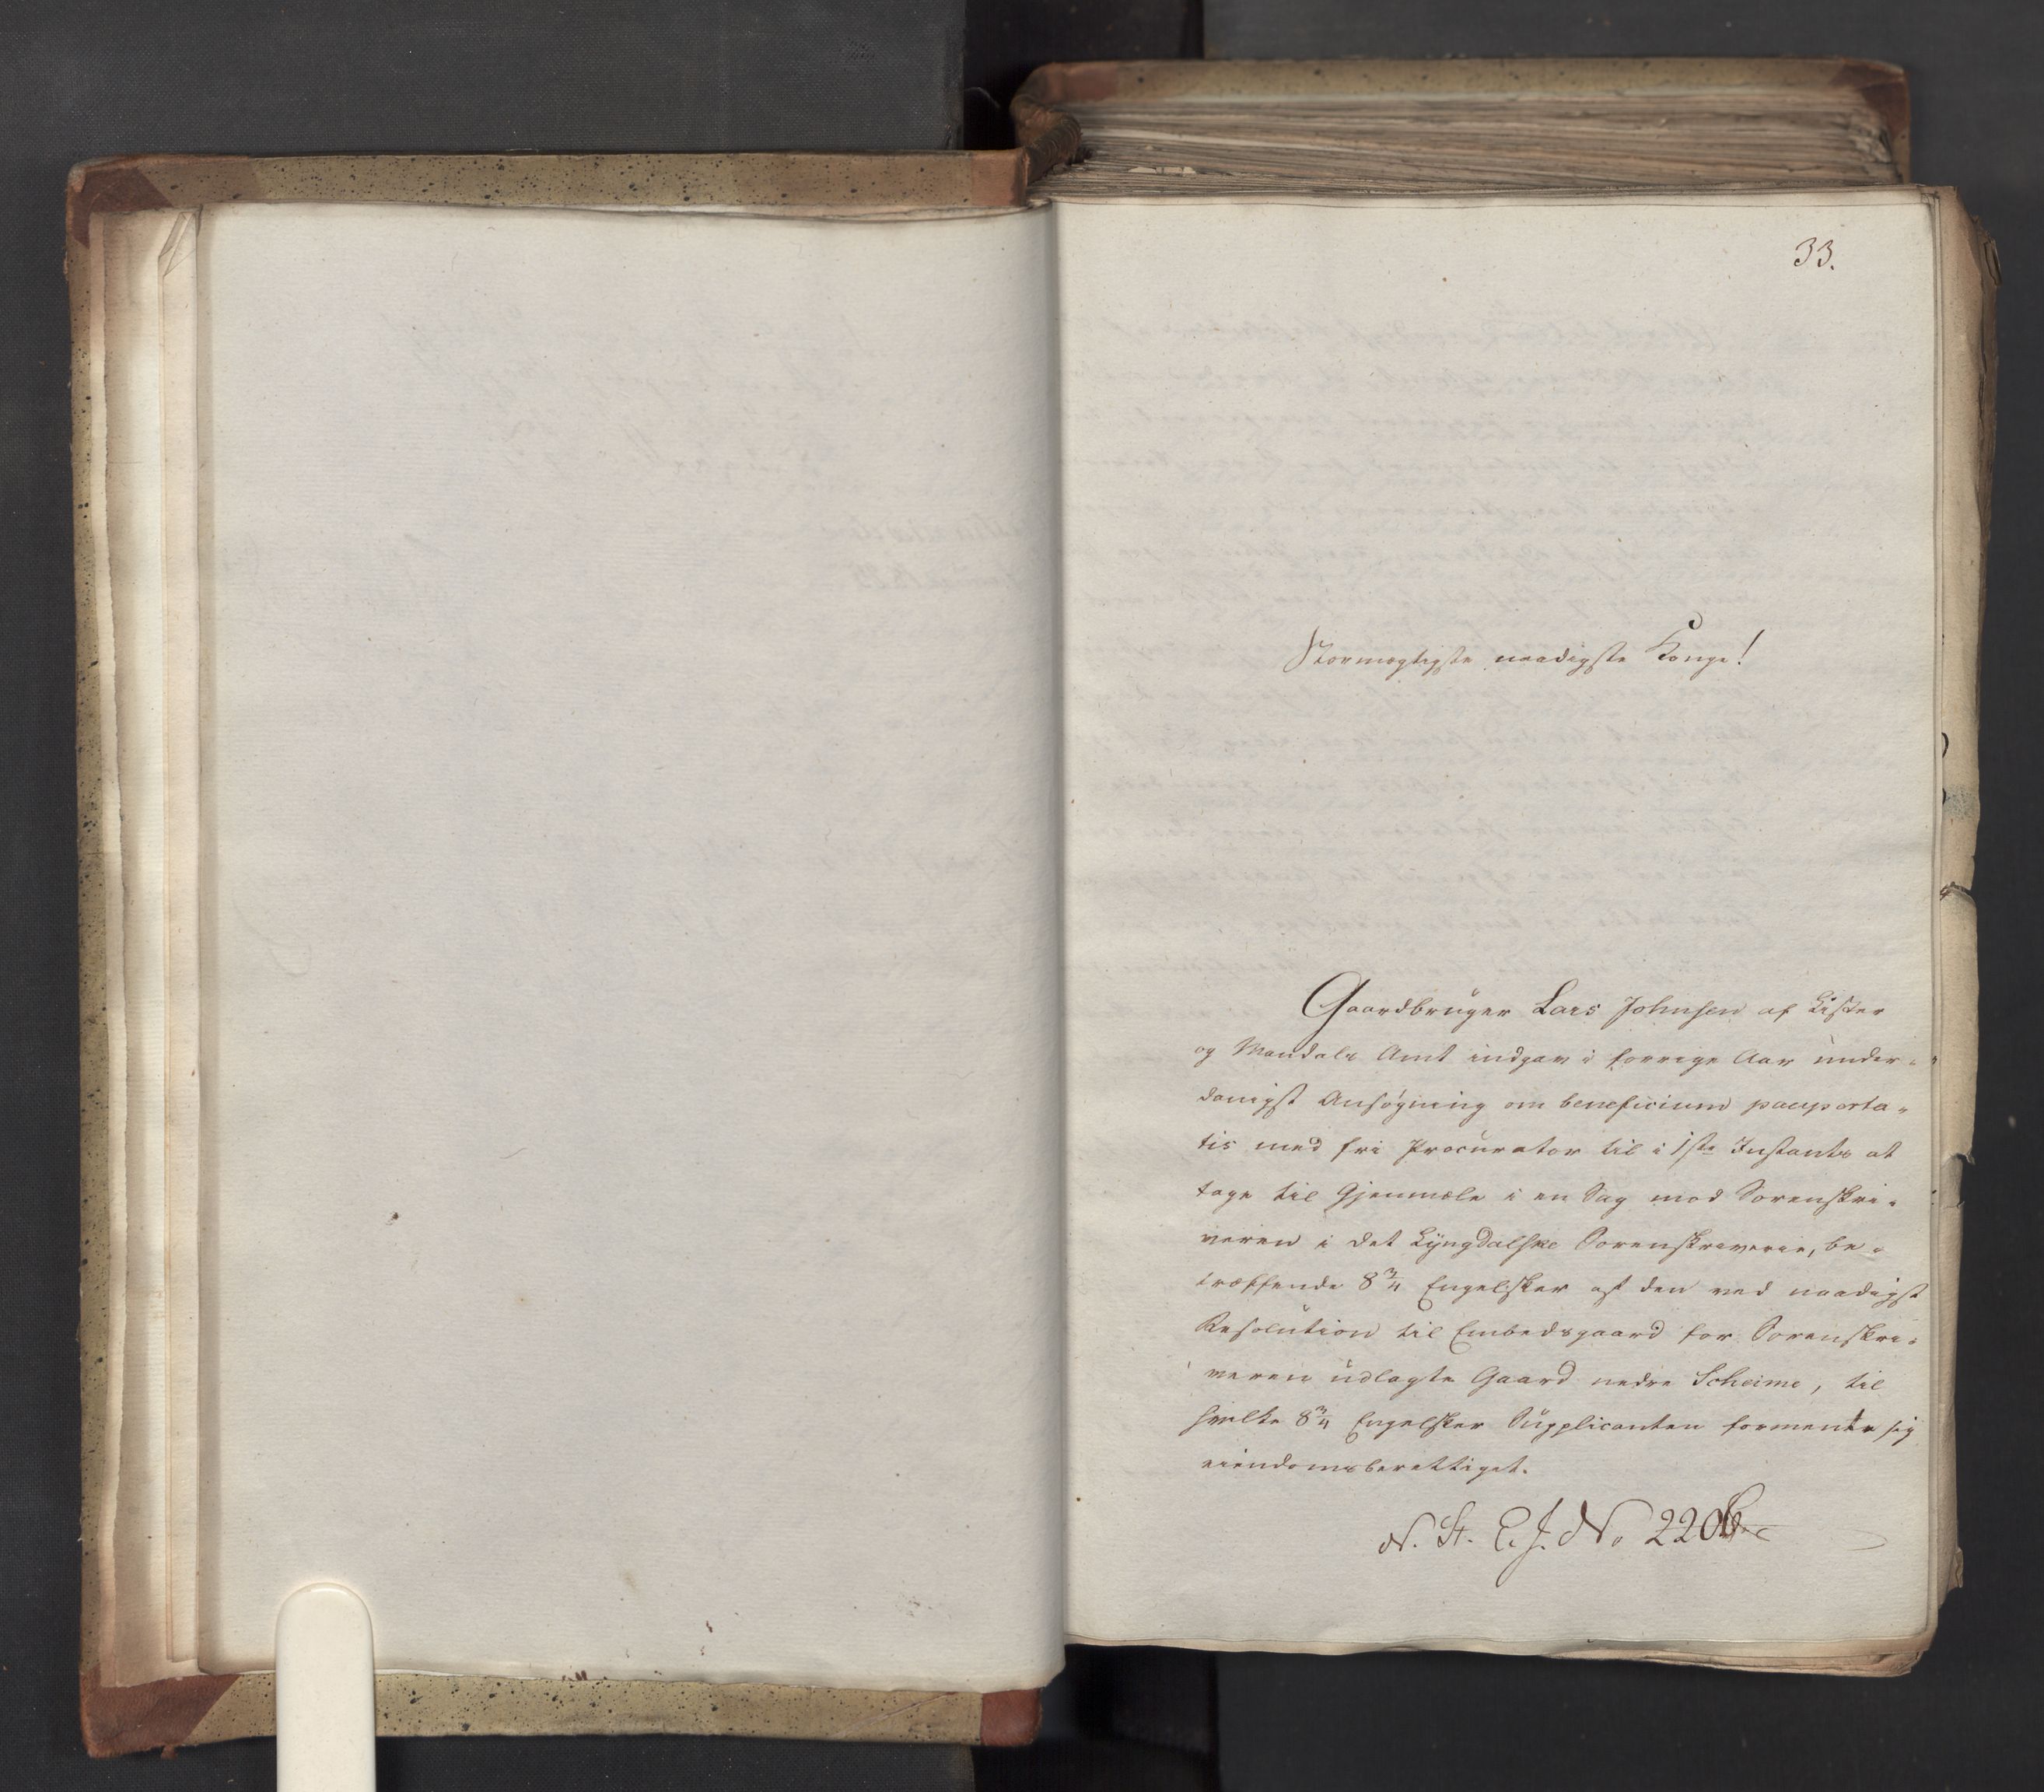 33.
Stormægtigste naadigste Konge!
Gaardbruger Lars Johnsen af Lister
og Mandals Amt indgav i forrige Aar under-
danigst Ansøgning om beneficium pauperta-
tis med fri Procurator til i 1ste Instants at
tage til Gjenmæle i en Sag mod Sorenskri-
veren i det Lyngdalske Sorenskriverie, be-
træffende 8 3/4 Engelsker af den ved naadigst
Resolution til Embedsgaard for Sorenskri-
veren udlagte Gaard nedre Scheime, til
hvilke 8 3/4 Engelsker Supplicanten formente sig
eiendomsberettiget.
N. St. E. J. No 220